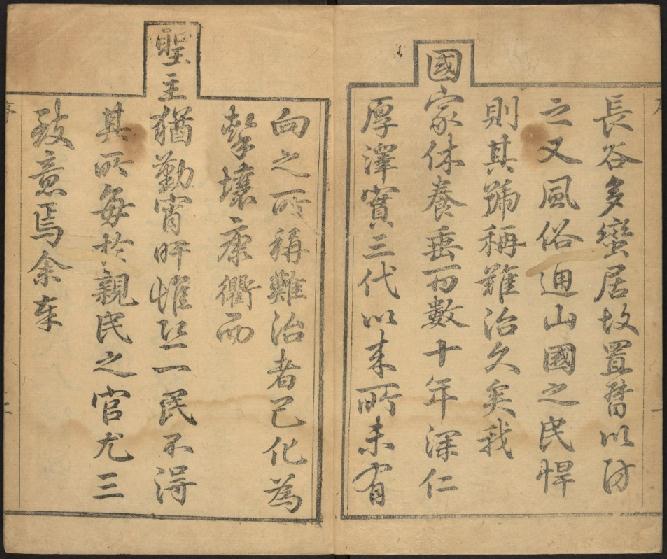 長谷多蠻居故置督以防
之又風俗通山國之民悍
則其號稱難治久矣我
國家休養垂百數十年深仁
厚澤實三代以來所未有
向之所稱難治者已化為
擊壤康衢而
聖主猶勤宵旰惟恐一民不得
其所每於親民之官尤三
致意焉余奉